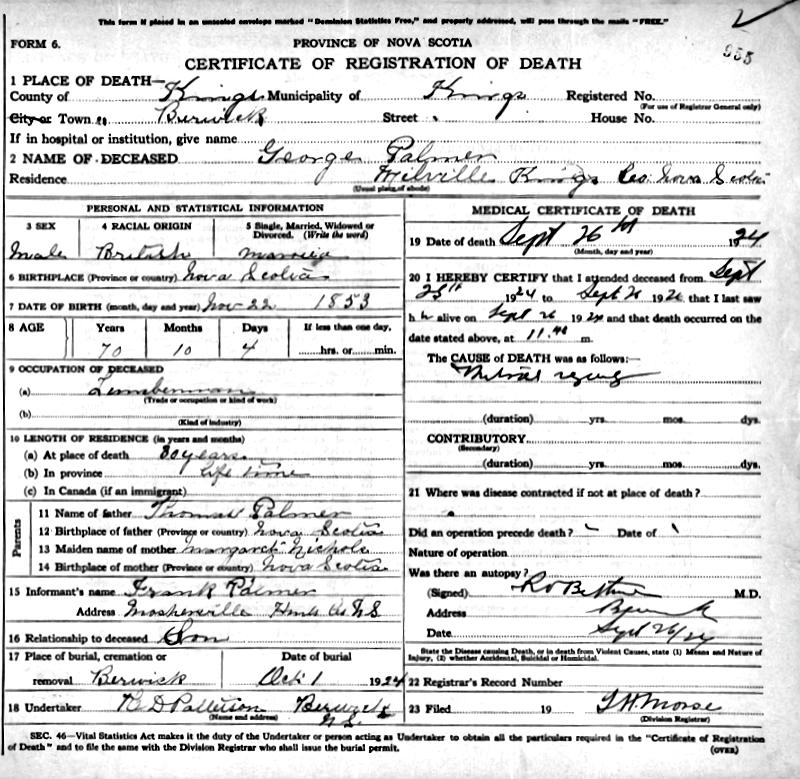 This form if placed in an unsealed envelope marked "Dominion Statistics Free," and properly addressed, will pass through the mails "FREE."
2
FORM 6. PROVINCE OF NOVA SCOTIA
955
CERTIFICATE OF REGISTRATION OF DEATH
1 PLACE OF DEATH—
County of Kings Municipality of Kings Registered No.
(For use of Registrar General only)
City or Town of Berwick Street House No.
If in hospital or institution, give name
2 NAME OF DECEASED George Palmer
Residence Milville Kings Co. Nova Scotia
(Usual place of abode)
PERSONAL AND STATISTICAL INFORMATION
3 SEX 4 RACIAL ORIGIN 5 Single, Married, Widowed or Divorced. (Write the word)
Male British married
6 BIRTHPLACE (Province or country) Nova Scotia
7 DATE OF BIRTH (month, day and year) Nov 22 1853
8 AGE Years Months Days If less than one day,
70 10 4 hrs. or min.
9 OCCUPATION OF DECEASED
(a) Lumberman
(Trade or occupation or kind of work)
(b)
(Kind of industry)
10 LENGTH OF RESIDENCE (in years and months)
(a) At place of death years
(b) In province life time
(c) In Canada (if an immigrant)
Parents
11 Name of father Thomas Palmer
12 Birthplace of father (Province or country) Nova Scotia
13 Maiden name of mother Margaret Nichols
14 Birthplace of mother (Province or country) Nova Scotia
15 Informant's name Frank Palmer
Address Mosherville Hants Co N S
16 Relationship to deceased Son
17 Place of burial, cremation or Date of burial
removal Berwick Oct 1 1924
18 Undertaker Berwick
(Name and address) N.S.
MEDICAL CERTIFICATE OF DEATH
19 Date of death Sept 26th 1924
(Month, day and year)
20 I HEREBY CERTIFY that I attended deceased from Sept
25th 1924 to Sept 26 192 that I last saw
h alive on Sept 26 1924 and that death occurred on the
date stated above, at 11.40 m.
The CAUSE of DEATH was as follows:—
Mitral regurg
(duration) yrs. mos. dys.
CONTRIBUTORY
(Secondary)
(duration) yrs. mos. dys.
21 Where was disease contracted if not at place of death?
Did an operation precede death? Date of
Nature of operation
Was there an autopsy?
(Signed) M.D.
Address Berwick
Date Sept 26/24
State the Disease causing Death, or in death from Violent Causes, state (1) Means and Nature of
Injury, (2) whether Accidental, Suicidal or Homicidal.
22 Registrar's Record Number
23 Filed 19 Morse
(Division Registrar)
SEC. 46—Vital Statistics Act makes it the duty of the Undertaker or person acting as Undertaker to obtain all the particulars required in the "Certificate of Registration
of Death" and to file the same with the Division Registrar who shall issue the burial permit. (OVER)